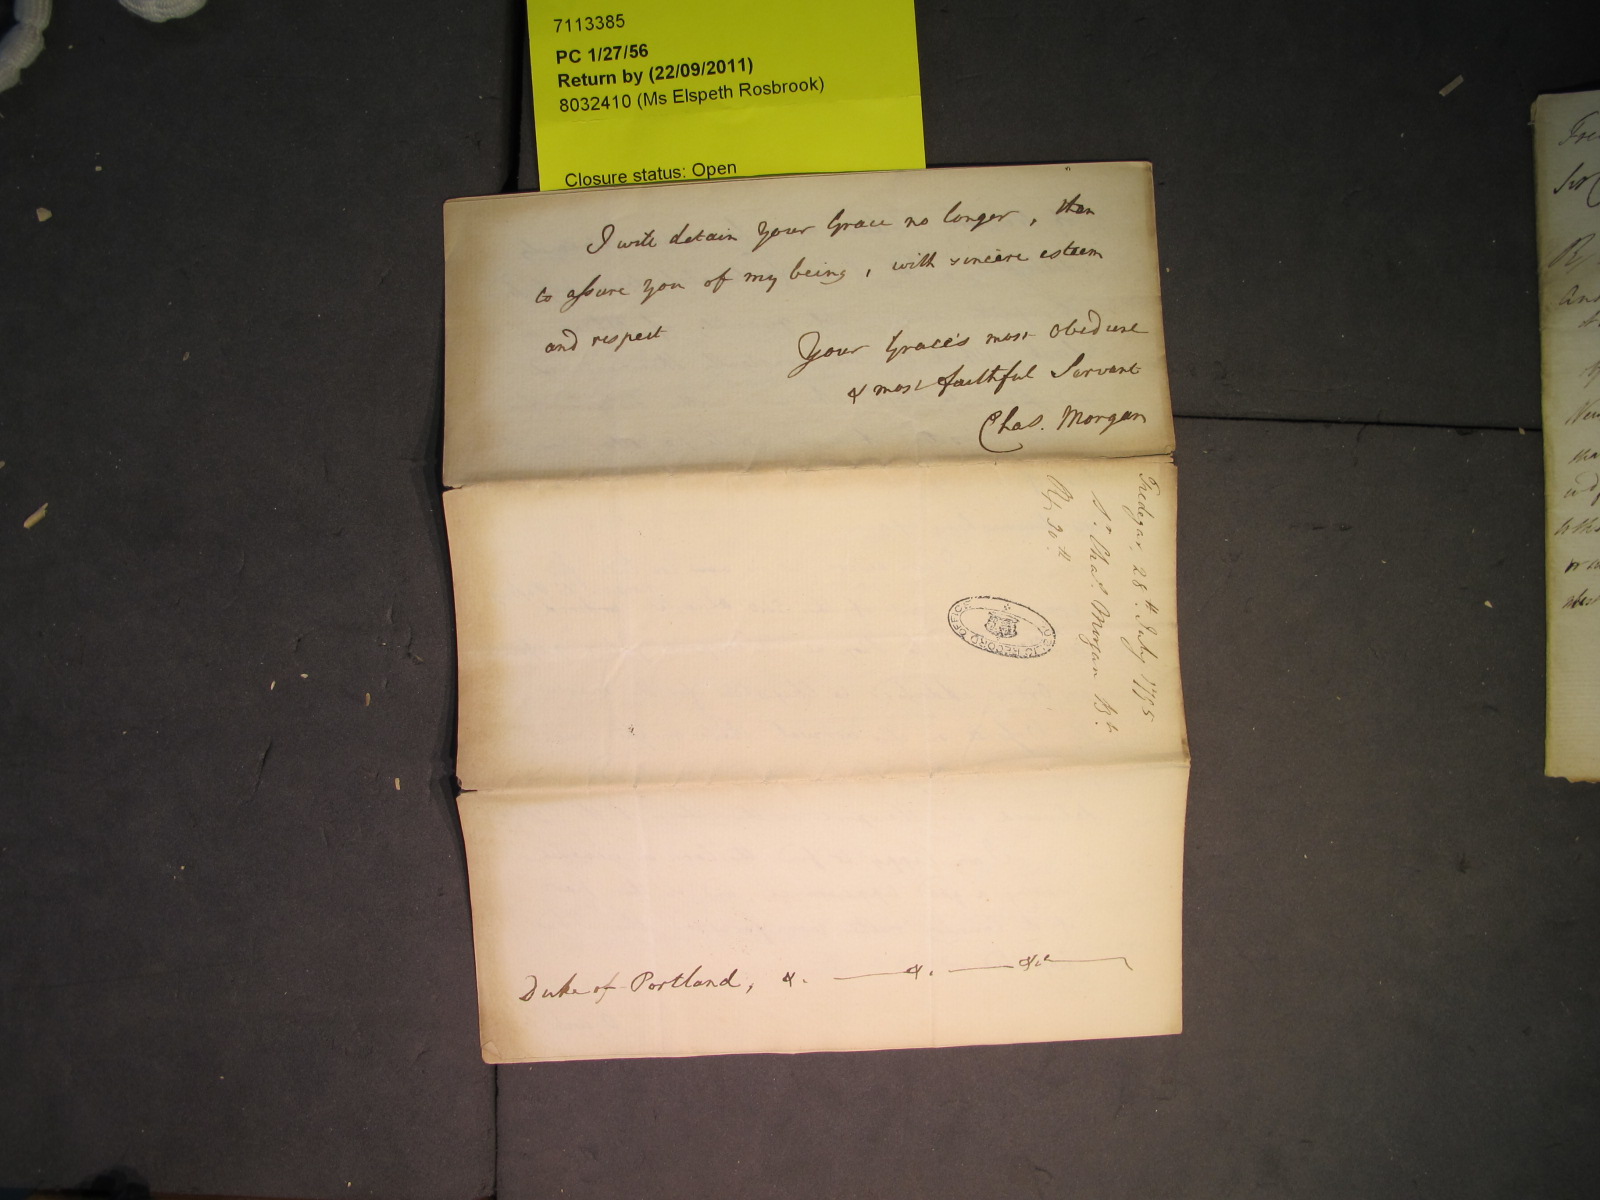 7113385
PC 1/27/56
Return by (22/09/2011)
8032410 (Ms Elspeth Rosbrook)
Closure status: Open
I will detain Your Grace no longer, then
to assure you of my being, with sincere esteem
and respect
Your Grace's most Obedient
& most faithful Servant
Chas. Morgan
Tredegar, 28th. July 1795
Sr. Chas. Morgan Bt.
R/ 30th
PUBLIC RECORD OFFICE
Duke of Portland, &. — &. — &c